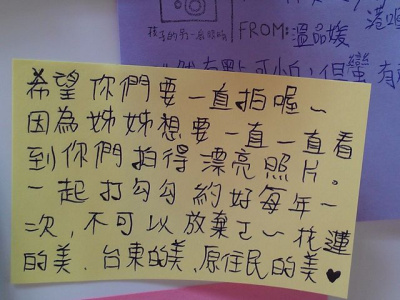 FROM:溫品媛
希望你們要一直拍喔~
因為姊姊想要一直一直看
到你們拍得漂亮照片。
一起打勾勾約好每年一
次,不可以放棄ㄛ~花蓮
的美、台東的美、原住民的美♥